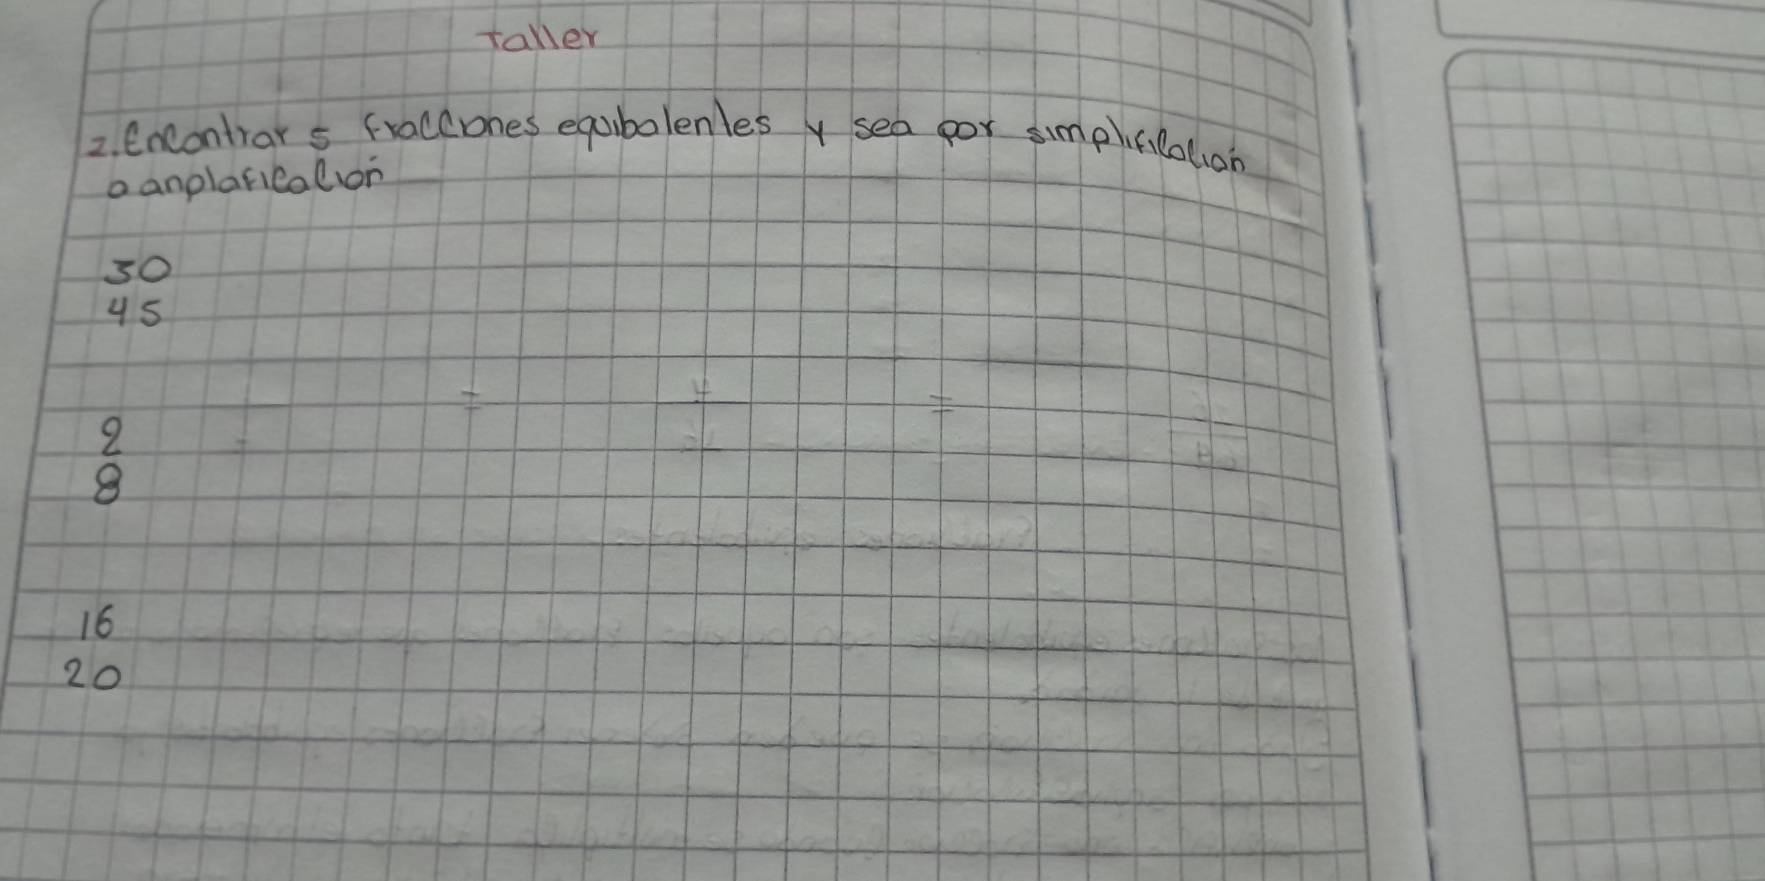 Taller
2. Encontrar 5 fracciones equibalentes y sea por simplificacion
o anplaficación
30
45
2
8
16
20